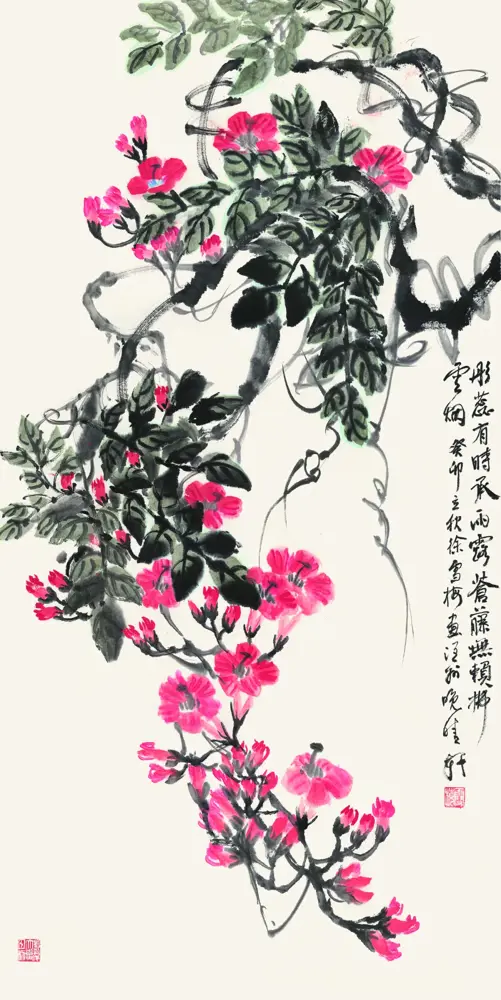 彤蕊有時承雨露蒼藤無賴拂
雲烟 癸卯立秋徐雪梅畫 晚晴軒